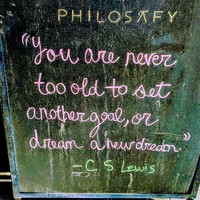 PHILOSAFY
"You are never
too old to set
another goal, or
dream a new dream."
- C. S. Lewis